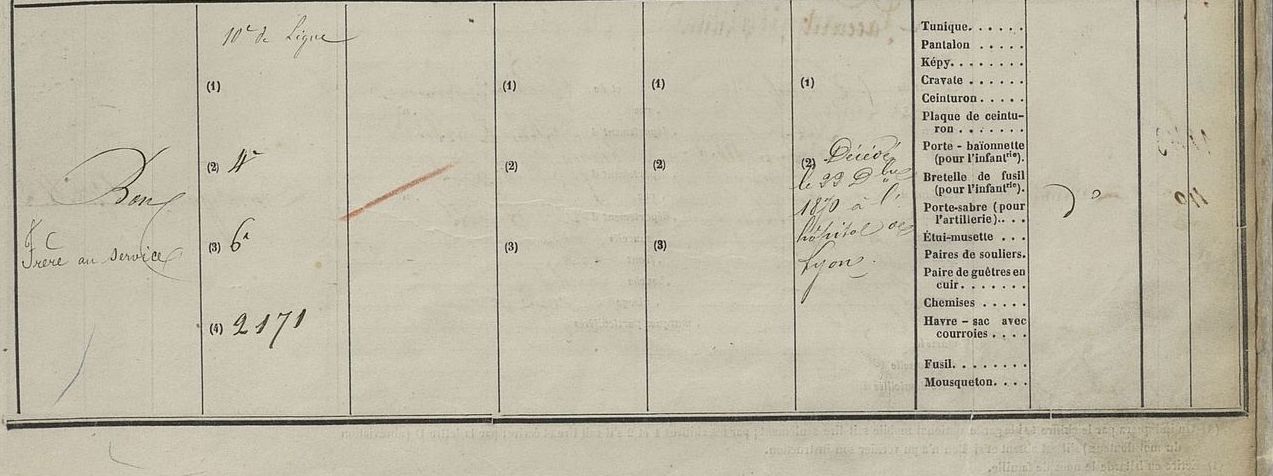 Bon
Frère au service
10e de Ligne
(1)
(2) 4e
(3) 6e
(4) 2171
(1)
(2)
(3)
(1)
(2)
(3)
(1)
(2) Décédé
le 22 Dbre
1870 à l'
hôpital de
Lyon.
Tunique. . . . . .
Pantalon . . . . .
Képy. . . . . . . .
Cravate . . . . . .
Ceinturon . . . . .
Plaque de ceintu-
ron . . . . . . .
Porte - baïonnette
(pour l'infantrie).
Bretelle de fusil
(pour l'infantrie).
Porte-sabre (pour
l'artillerie). . . .
Étui-musette . . .
Paires de souliers.
Paire de guêtres en
cuir. . . . . . .
Chemises . . . . .
Havre - sac avec
courroies . . . .
Fusil. . . . . . . .
Mousqueton. . . .